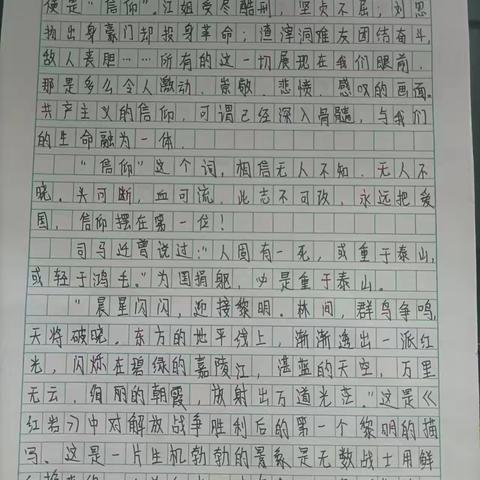 便是“信仰”。江姐受尽酷刑，坚贞不屈；刘思
扬出身豪门却投身革命；渣滓洞难友团结奋斗，
敌人丧胆……所有的这一切展现在我们眼前，
那是多么令人激动、崇敬、悲愤、感叹的画面。
共产主义的信仰，可谓已经深入骨髓，与我们
的生命融为一体。
“信仰”这个词，相信无人不知、无人不
晓。头可断，血可流，此志不可改，永远把爱
国，信仰摆在第一位！
司马迁曾说过：“人固有一死，或重于泰山，
或轻于鸿毛。”为国捐躯，必是重于泰山。
“晨星闪闪，迎接黎明。林间，群鸟争鸣，
天将破晓。东方的地平线上，渐渐透出一派红
光，闪烁在碧绿的嘉陵江，湛蓝的天空，万里
无云，绚丽的朝霞，放射出万道光芒。”这是《
红岩》中对解放战争胜利后的第一个黎明的描
写。这是一片生机勃勃的景象是无数战士用鲜